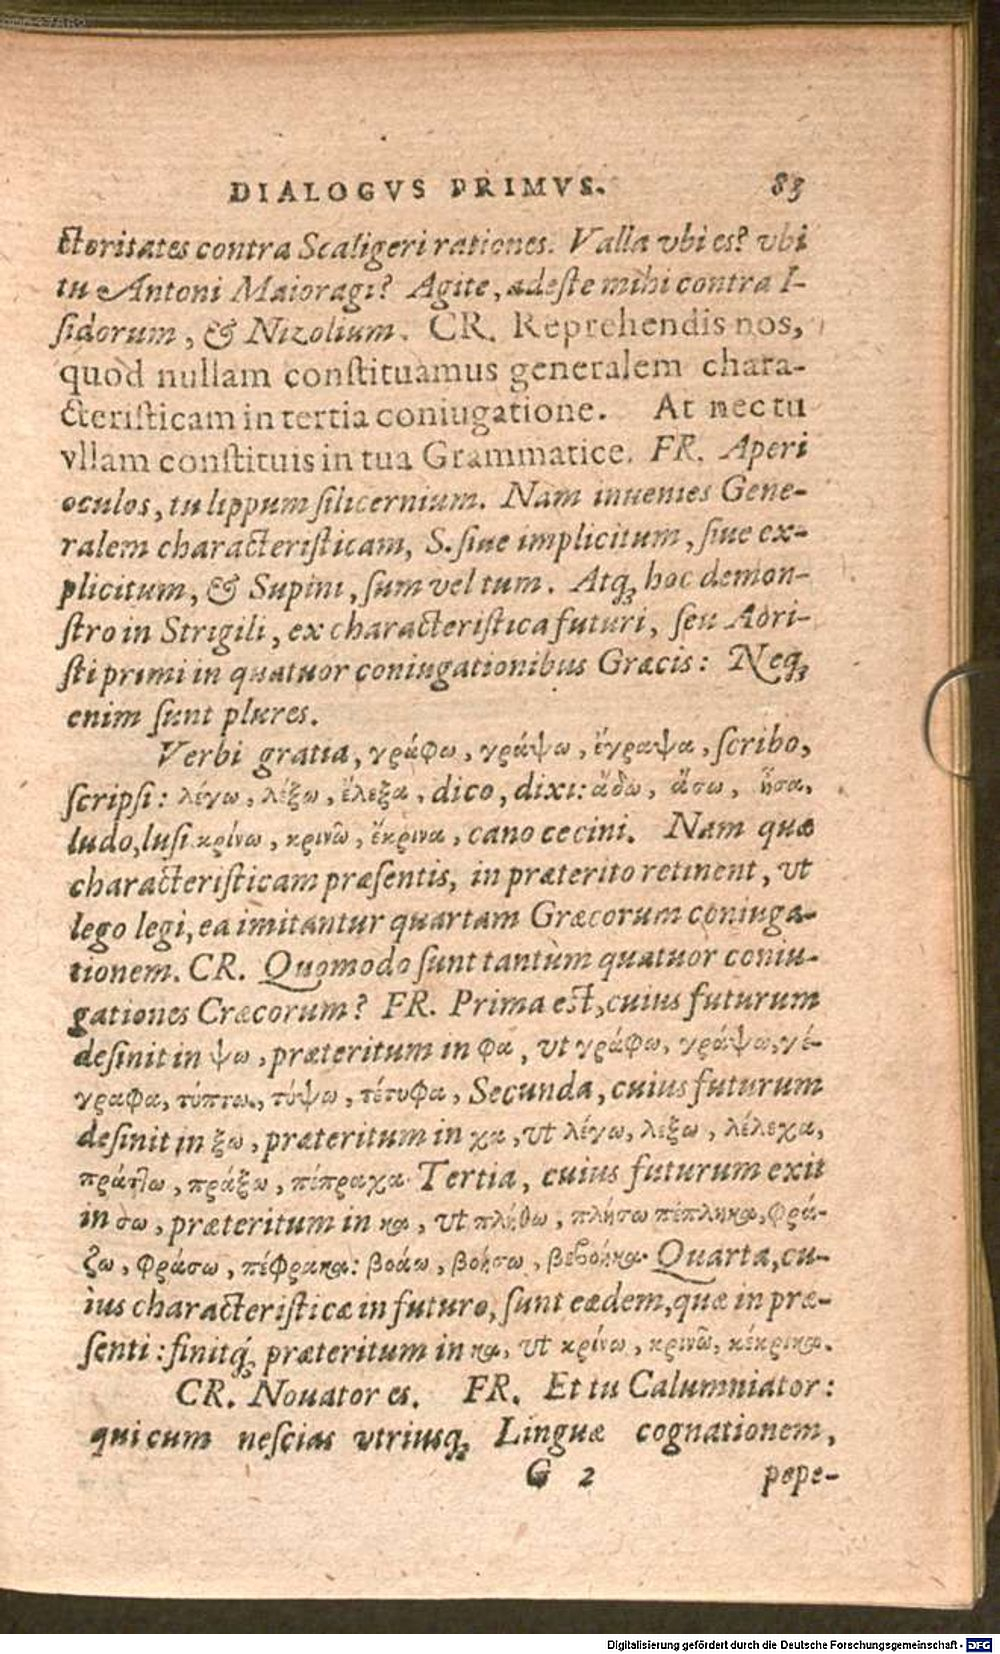 DIALOGVS PRIMVS. 83
ctoritates contra Scaligeri rationes. Valla vbi es? vbi
tu Antoni Maioragi? Agite, adeſte mihi contra I-
ſidorum, & Nizolium. CR. Reprehendis nos,
quod nullam conſtituamus generalem chara-
cteriſticam in tertia coniugatione. At nec tu
vllam conſtituis in tua Grammatice. FR. Aperi
oculos, tu lippum ſilicernium. Nam inuenies Gene-
ralem characteriſticam, S. ſiue implicitum, ſiue ex-
plicitum, & Supini, ſum vel tum. Atq; hoc demon-
ſtro in Strigili, ex characteriſtica futuri, ſeu Aori-
ſti primi in quatuor coniugationibus Græcis: Neq;
enim ſunt plures.
Verbi gratia, γράφω, γράψω, ἔγραψα, ſcribo,
ſcripſi: λέγω, λέξω, ἔλεξα, dico, dixi: ἄδω, ἄσω, ἦσα,
ludo, luſi κρίνω, κρινῶ, ἔκρινα, cano cecini. Nam quæ
characteriſticam præſentis, in præterito retinent, vt
lego legi, ea imitantur quartam Græcorum coniuga-
tionem. CR. Quomodo ſunt tantùm quatuor coniu-
gationes Cræcorum? FR. Prima eſt, cuius futurum
deſinit in ψω, præteritum in φα, vt γράφω, γράψω, γέ-
γραφα, τύπτω, τύψω, τέτυφα, Secunda, cuius futurum
deſinit in ξω, præteritum in χα, vt λέγω, λέξω, λέλεχα,
πράττω, πράξω, πέπραχα· Tertia, cuius futurum exit
in σω, præteritum in κα, vt πλήθω, πλήσω πέπληκα, φρά-
ζω, φράσω, πέφρακα: βοάω, βοήσω, βεβόηκα· Quarta, cu-
ius characteriſticæ in futuro, ſunt eædem, quæ in præ-
ſenti: finitq́; præteritum in κα, vt κρίνω, κρινῶ, κέκρικα.
CR. Nouator es. FR. Et tu Calumniator:
qui cum neſcias vtriusq; Linguæ cognationem,
G 2 pepe-
Digitalisierung gefördert durch die Deutsche Forschungsgemeinschaft - DFG